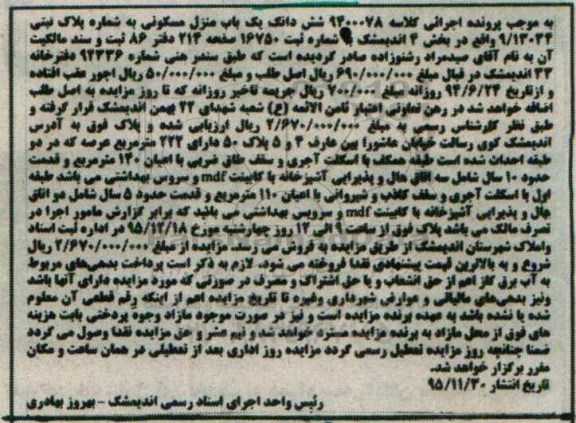 به موجب پرونده اجرائی کلاسه 9400078 شش دانگ یک باب منزل مسکونی به شماره پلاک ثبتی
9/13034 واقع در بخش 4 اندیمشک به شماره ثبت 16750 صفحه 214 دفتر 86 ثبت و سند مالکیت
آن به نام آقای سیدمراد رشنوزاده صادر گردیده است که طبق سند رهنی شماره 92336 دفترخانه
33 اندیمشک در قبال مبلغ 690/000/000 ریال اصل طلب و مبلغ 50/000/000 ریال اجور عقب افتاده
و ازتاریخ 94/6/24 روزانه مبلغ 700/000 ریال جریمه تاخیر روزانه که تا روز مزایده به اصل طلب
اضافه خواهد شد در رهن تعاونی اعتبار ثامن الائمه (ع) شعبه شهدای 22 بهمن اندیمشک قرار گرفته و
طبق نظر کارشناس رسمی به مبلغ 2/670/000/000 ریال ارزیابی شده و پلاک فوق به آدرس
اندیمشک کوی رسالت خیابان عاشورا بین عارف 4 و 5 پلاک 50 دارای 222 مترمربع عرصه که در دو
طبقه احداث شده است طبقه همکف با اسکلت آجری و سقف طاق ضربی با اعیان 130 مترمربع و قدمت
حدود 10 سال شامل سه اتاق هال و پذیرایی آشپزخانه با کابینت mdf و سروس بهداشتی می باشد طبقه
اول با اسکلت آجری و سقف کاذب و شیروانی با اعیان 110 مترمربع و قدمت حدود 5 سال شامل دو اتاق
هال و پذیرایی آشپزخانه با کابینت mdf و سرویس بهداشتی می باشد که برابر گزارش مامور اجرا در
تصرف مالک می باشد پلاک فوق از ساعت 9 الی 12 روز چهارشنبه مورخ 95/12/18 در اداره ثبت اسناد
واملاک شهرستان اندیمشک از طریق مزایده به فروش می رسد. مزایده از مبلغ 2/670/000/000 ریال
شروع و به بالاترین قیمت پیشنهادی نقدا فروخته می شود. لازم به ذکر است پرداخت بدهی‌های مربوط
به آب برق گاز اعم از حق انشعاب و یا حق اشتراک و مصرف در صورتی که مورد مزایده دارای آنها باشد
ونیز بدهی‌های مالیاتی و عوارض شهرداری وغیره تا تاریخ مزایده اعم از اینکه رقم قطعی آن معلوم
شده یا نشده باشد به عهده برنده مزایده است و نیز در صورت موجود مازاد وجوه پرداختی بابت هزینه
های فوق از محل مازاد به برنده مزایده مسترد خواهد شد و نیم عشر و حق مزایده نقدا وصول می گردد
ضمنا چنانچه روز مزایده تعطیل رسمی گردد مزایده روز اداری بعد از تعطیلی در همان ساعت و مکان
مقرر برگزار خواهد شد.
تاریخ انتشار 95/11/30
رئیس واحد اجرای اسناد رسمی اندیمشک - بهروز بهادری